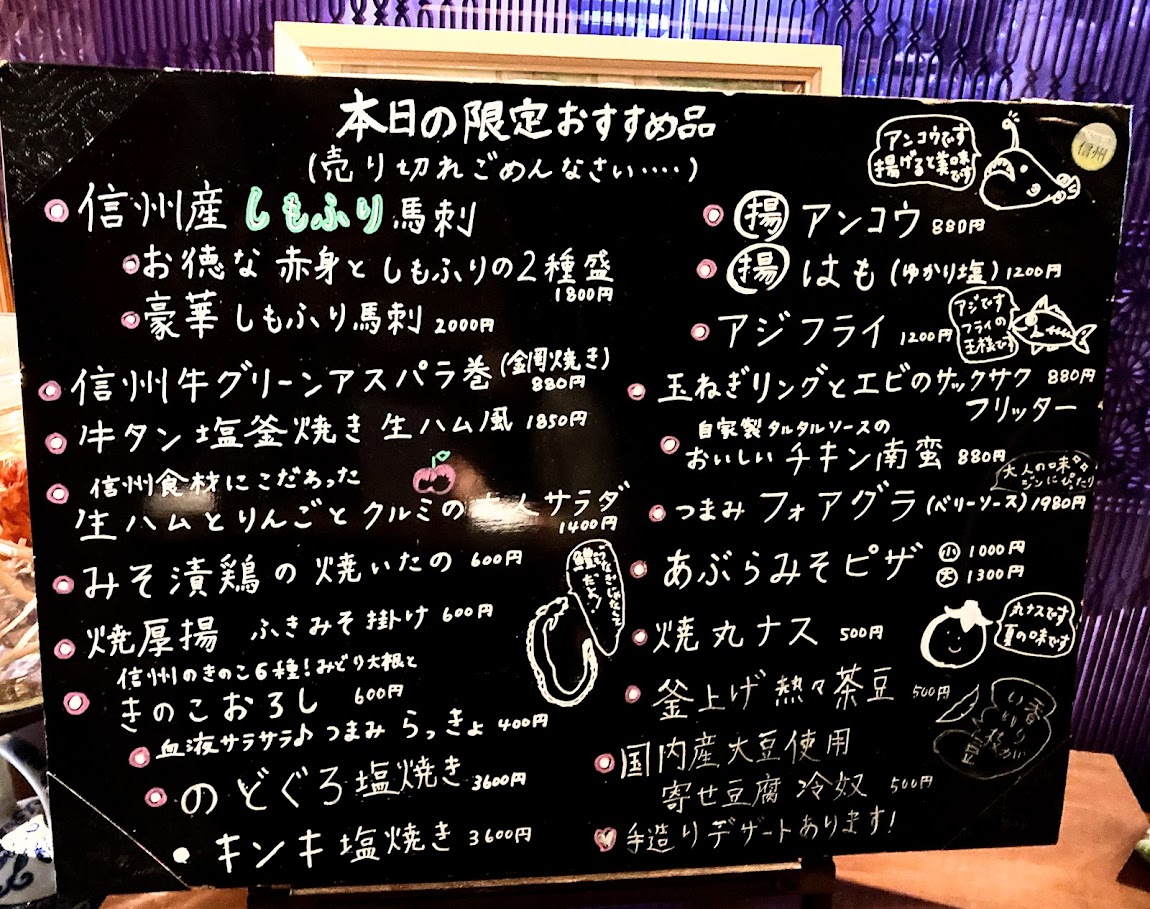 本日の限定おすすめ品
(売り切れごめんなさい‥‥)
信州産 しもふり 馬刺
お徳な 赤身としもふりの2種盛
1800円
豪華 しもふり馬刺 2000円
信州牛グリーンアスパラ巻 (鍋焼き)
880円
牛タン 塩釜焼き 生ハム風 1850円
信州食材にこだわった
生ハムとりんごとクルミの大人サラダ
1400円
みそ漬鶏の焼いたの 600円
焼厚揚 ふきみそ掛け 600円
信州のきのこ6種!みどり大根と
きのこおろし 600円
血液サラサラ♪ つまみ らっきょ 400円
のどぐろ塩焼き 3600円
キンキ塩焼き 3600円
アンコウです
揚げると美味
です
信州
揚 アンコウ 880円
揚 はも (ゆかり塩) 1200円
アジフライ 1200円
アジです
フライの
王様です
玉ねぎリングとエビのサックサク 880円
フリッター
自家製タルタルソースの
おいしいチキン南蛮 880円
大人の味
ジンにぴったり
つまみ フォアグラ (ベリーソース) 1980円
あぶらみそピザ 小 1000円
大 1300円
焼丸ナス 500円
丸ナスです
夏の味です
釜上げ 熱々茶豆 500円
国内産大豆使用
寄せ豆腐 冷奴 500円
手造りデザートあります!